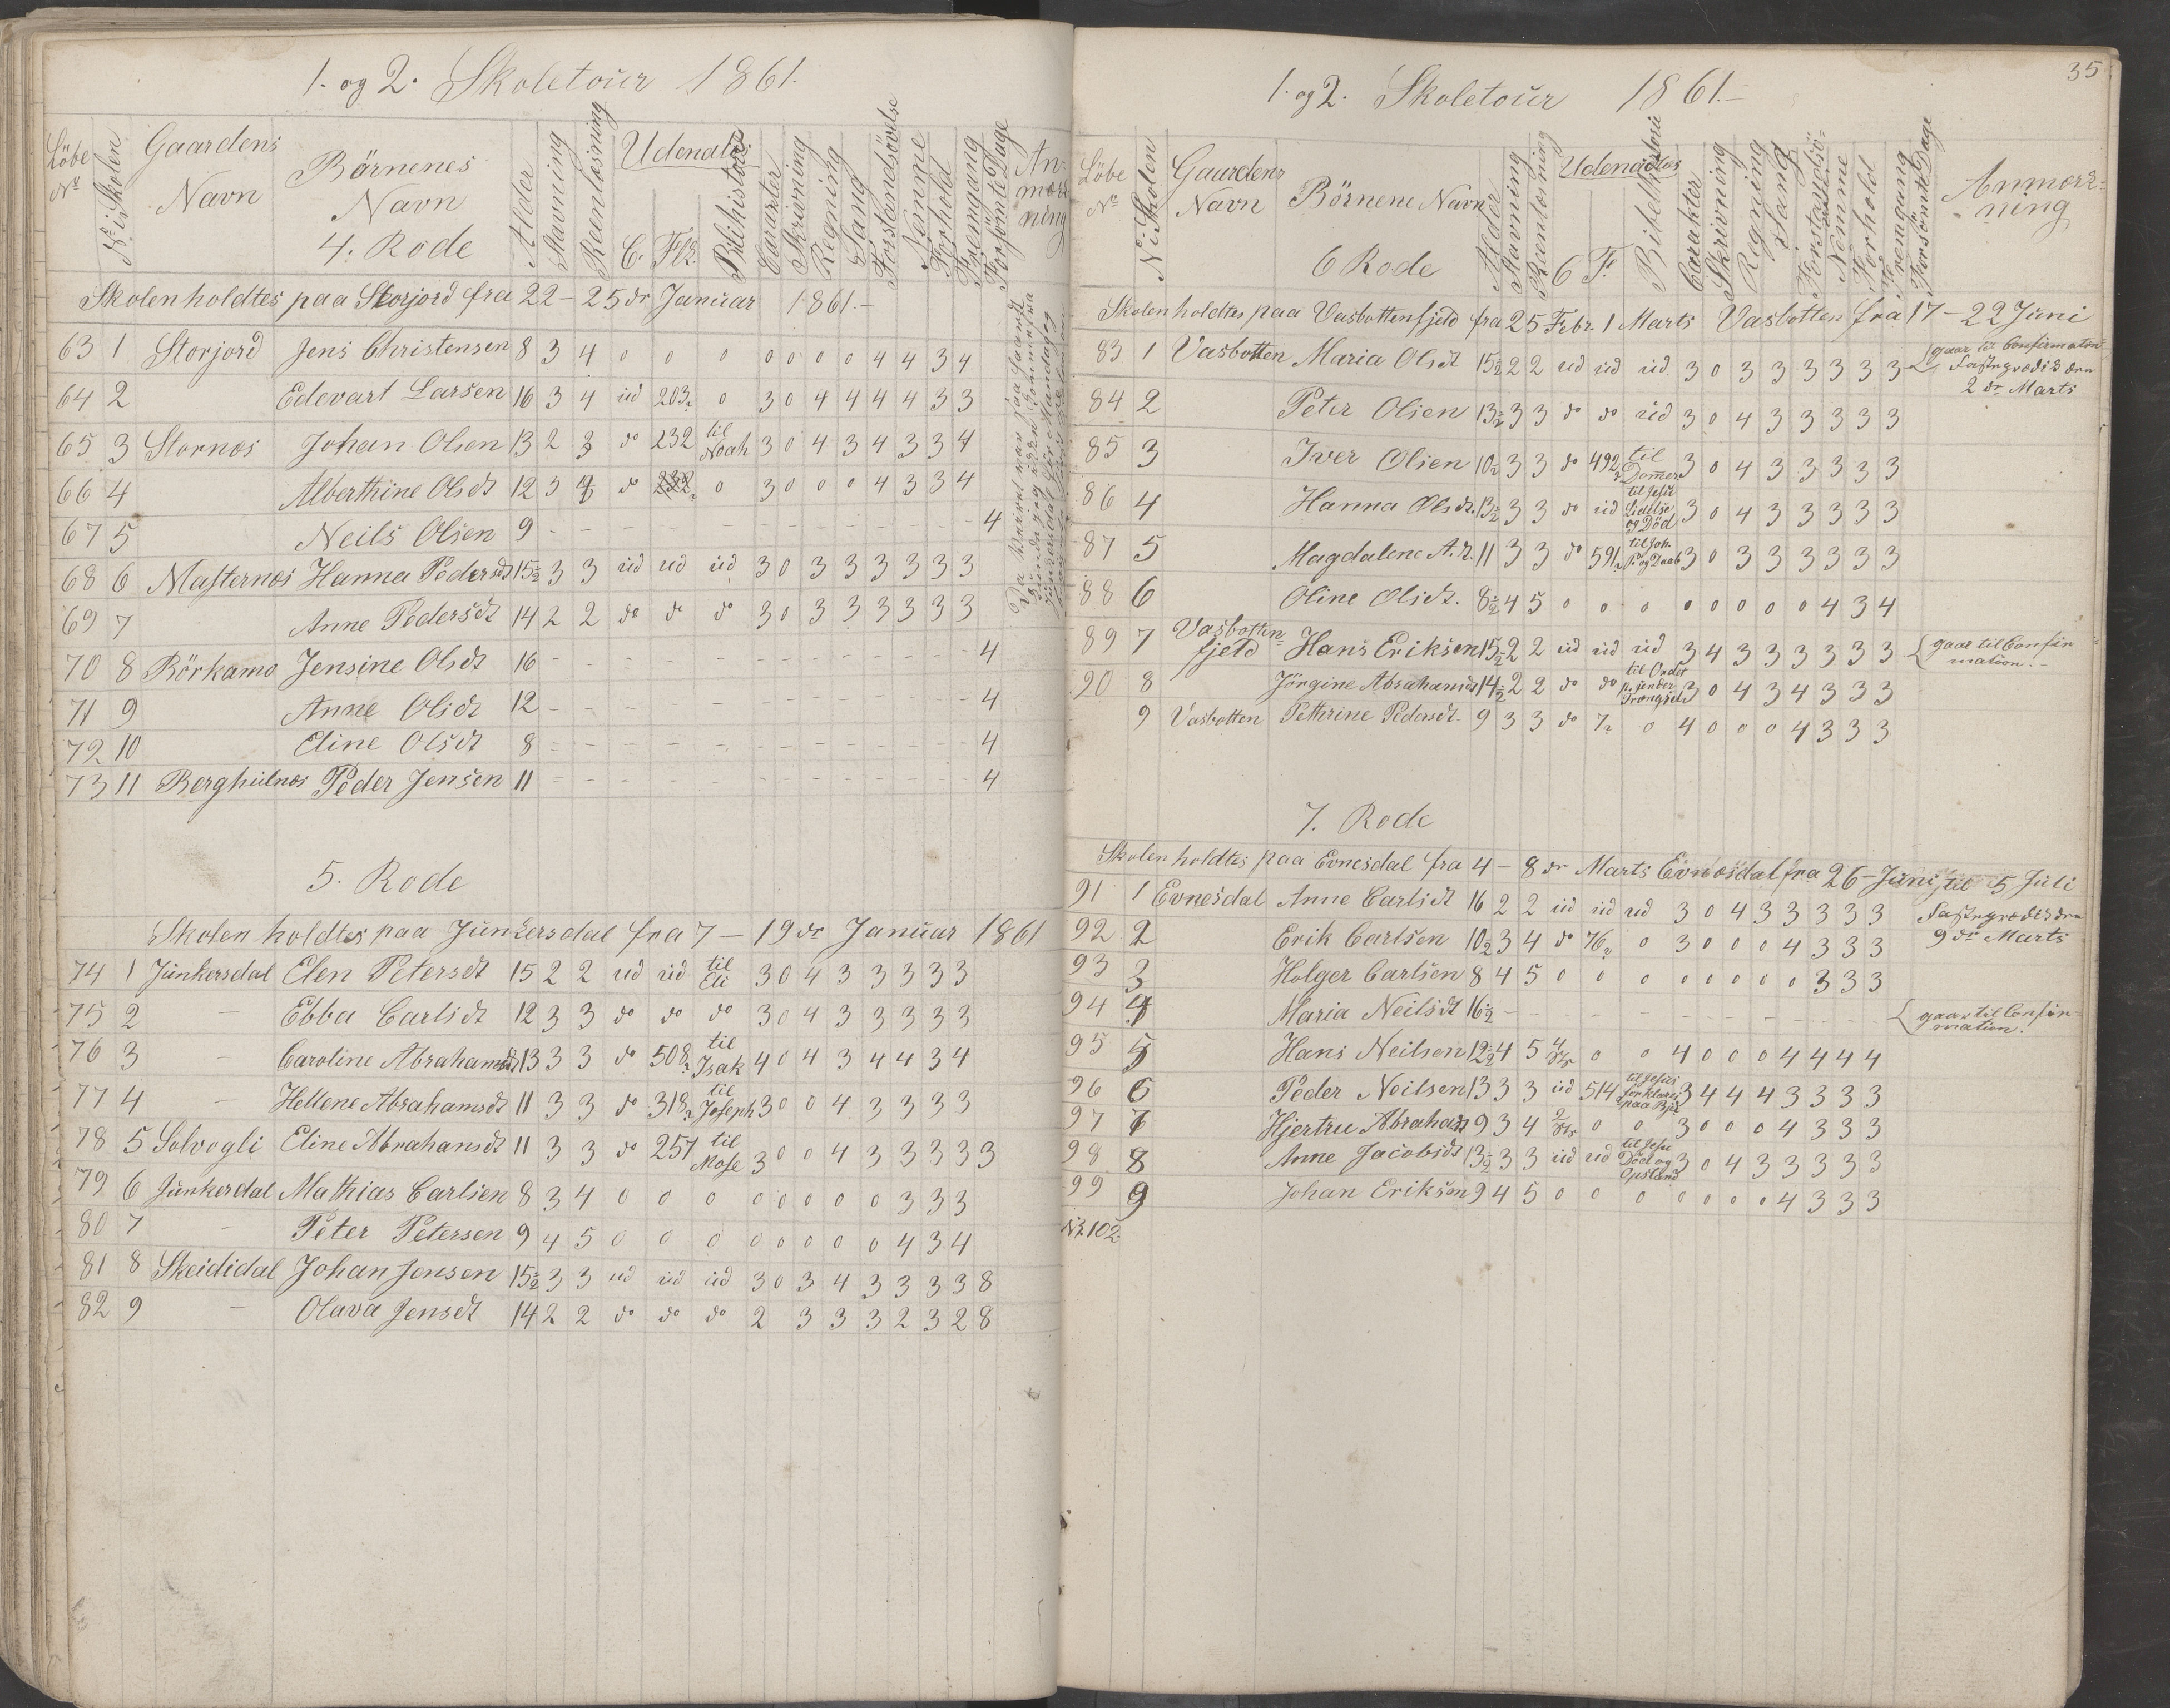 1. og 2. Skoletour 1861.
Löbe No
No i Skolen
Gaardens Navn
Börnenes Navn
4. Rode
Alder
Stavning
Reenlæsning
Udenadlæs
C.
Fkl.
Bibilhistorie
Caracter
Skrivning
Regning
Sang
Forstandsövelse
Nemme
Forhold
Fremgang
Forsömte Dage
Anmærkning
Skolen holdtes paa Storjord fra 22 - 25 de Januar 1861.-
63 1 Storjord Jens Christensen 8 3 4 0 0 0 0 0 0 0 4 4 3 4
64 2 Edevart Larsen 16 3 4 ud 203 0 3 0 4 4 4 4 3 3
65 3 Stornæs Johan Olsen 13 2 3 do 232 til Noah 3 0 4 3 4 3 3 4
66 4 Alberthine Olsdt 12 3 4 do 232 0 3 0 0 0 4 3 3 4
67 5 Neils Olsen 9 - - - - - - - - - - - - - 4
68 6 Masternæs Hanna Pedersdt 15½ 3 3 ud ud ud 3 0 3 3 3 3 3 3
69 7 Anne Pedersdt 14 2 2 do do do 3 0 3 3 3 3 3 3
70 8 Börkamo Jensine Olsdt 16 - - - - - - - - - - - - - 4
71 9 Anne Olsdt 12 - - - - - - - - - - - - - 4
72 10 Eline Olsdt 8 - - - - - - - - - - - - - 4
73 11 Berghulnæs Peder Jensen 11 - - - - - - - - - - - - - 4
5. Rode
Skolen holdtes paa Junkersdal fra 7 - 19 de Januar 1861
74 1 Junkersdal Elen Petersdt 15 2 2 ud ud til Eli 3 0 4 3 3 3 3 3
75 2 - Ebba Carlsdt 12 3 3 do do do 3 0 4 3 3 3 3 3
76 3 - Caroline Abrahamsdt 13 3 3 do 508 til Isak 4 0 4 3 4 4 3 4
77 4 - Hellene Abrahamsdt 11 3 3 do 318 til Joseph 3 0 0 4 3 3 3 3
78 5 Solvogli Eline Abrahamsdt 11 3 3 do 257 til Mose 3 0 0 4 3 3 3 3 3
79 6 Junkerdal Mathias Carlsen 8 3 4 0 0 0 0 0 0 0 0 3 3 3
80 7 - Peter Petersen 9 4 5 0 0 0 0 0 0 0 0 4 3 4
81 8 Skeididal Johan Jensen 15½ 3 3 ud ud ud 3 0 3 4 3 3 3 3 8
82 9 - Olava Jensdt 14 2 2 do do do 2 3 3 3 2 3 2 8
35
1. og 2. Skoletour 1861.-
Löbe No
No i Skolen
Gaardens Navn
Börnene Navn
6 Rode
Alder
Stavning
Reenlæsning
Udenadlæs
C
F.
Bibelhistori
Carakter
Skrivning
Regning
Sang
Forstandsö-
Nemme
Forhold
Fremgang
Forsömte Dage
Anmærk-
ning
Skolen holdtes paa Vasbottenfjeld fra 25 Febr. 1 Marts Vasbotten fra 17 - 22 Juni
83 1 Vasbotten Maria Olsdt 15½ 2 2 ud ud ud. 3 0 3 3 3 3 3 3 gaar til Confirmation
Fastegrædis den
2 de Marts
84 2 Peter Olsen 13½ 3 3 do do ud 3 0 4 3 3 3 3 3
85 3 Iver Olsen 10½ 3 3 do 492 til Domer 3 0 4 3 3 3 3 3
86 4 Hanna Olsdt. 13½ 3 3 do ud til Jesu Lidelse og Död 3 0 4 3 3 3 3 3
87 5 Magdalene A.d. 11 3 3 do 591 til Joh. P. og Daab 3 0 3 3 3 3 3 3
88 6 Oline Olsdt. 8½ 4 5 0 0 0 0 0 0 0 0 4 3 4
89 7 Vasbotten-
fjeld Hans Eriksen 15½ 2 2 ud ud ud 3 4 3 3 3 3 3 3 gaar til Confir
mation.-
90 8 Jörgine Abrahamsdt 14½ 2 2 do do til Ordet p. under Trængsel 3 0 4 3 4 3 3 3
9 Vasbotten Pethrine Pedersdt. 9 3 3 do 7 0 4 0 0 0 4 3 3 3
7. Rode
Skolen holdtes paa Evnesdal fra 4 - 8 de Marts Evnesdal fra 26 - Juni til 5 Juli
91 1 Evnesdal Anne Carlsdt 16 2 2 ud ud ud 3 0 4 3 3 3 3 3 Fastegrædis den
9 de Marts
92 2 Erik Carlsen 10½ 3 4 do 76 0 3 0 0 0 4 3 3 3
93 3 Holger Carlsen 8 4 5 0 0 0 0 0 0 0 0 3 3 3
94 4 Maria Neilsdt 16½ - - - - - - - - - - gaar til Confir-
mation.
95 5 Hans Neilsen 12½ 4 5 4 0 0 4 0 0 0 4 4 4 4
96 6 Peder Neilsen 13 3 3 ud 514 til Jesus forklares paa Bjer 3 4 4 4 3 3 3 3
97 7 Hjertru Abraham 9 3 4 2 0 0 3 0 0 0 4 3 3 3
98 8 Anne Jacobsdt 13½ 3 3 ud ud til Jesu Död og Opstand 3 0 4 3 3 3 3 3
99 9 Johan Eriksen 9 4 5 0 0 0 0 0 0 0 4 3 3 3
Nr. 102